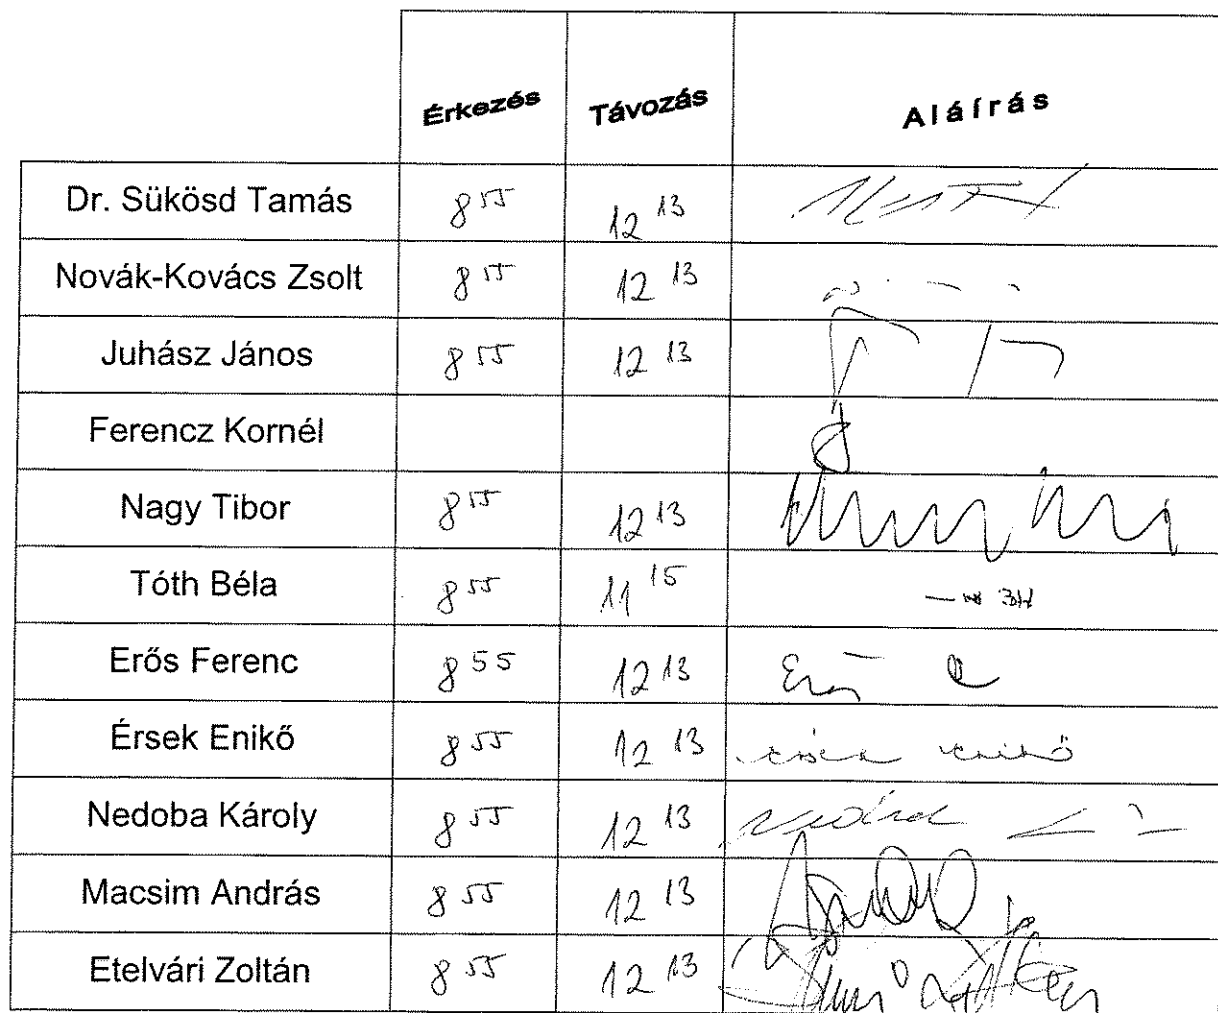 Érkezés Távozás Aláírás
Dr. Sükösd Tamás 8 55 12 13
Novák-Kovács Zsolt 8 55 12 13
Juhász János 8 55 12 13
Ferencz Kornél
Nagy Tibor 8 55 12 13
Tóth Béla 8 55 11 15
Erős Ferenc 8 55 12 13
Érsek Enikő 8 55 12 13
Nedoba Károly 8 55 12 13
Macsim András 8 55 12 13
Etelvári Zoltán 8 55 12 13